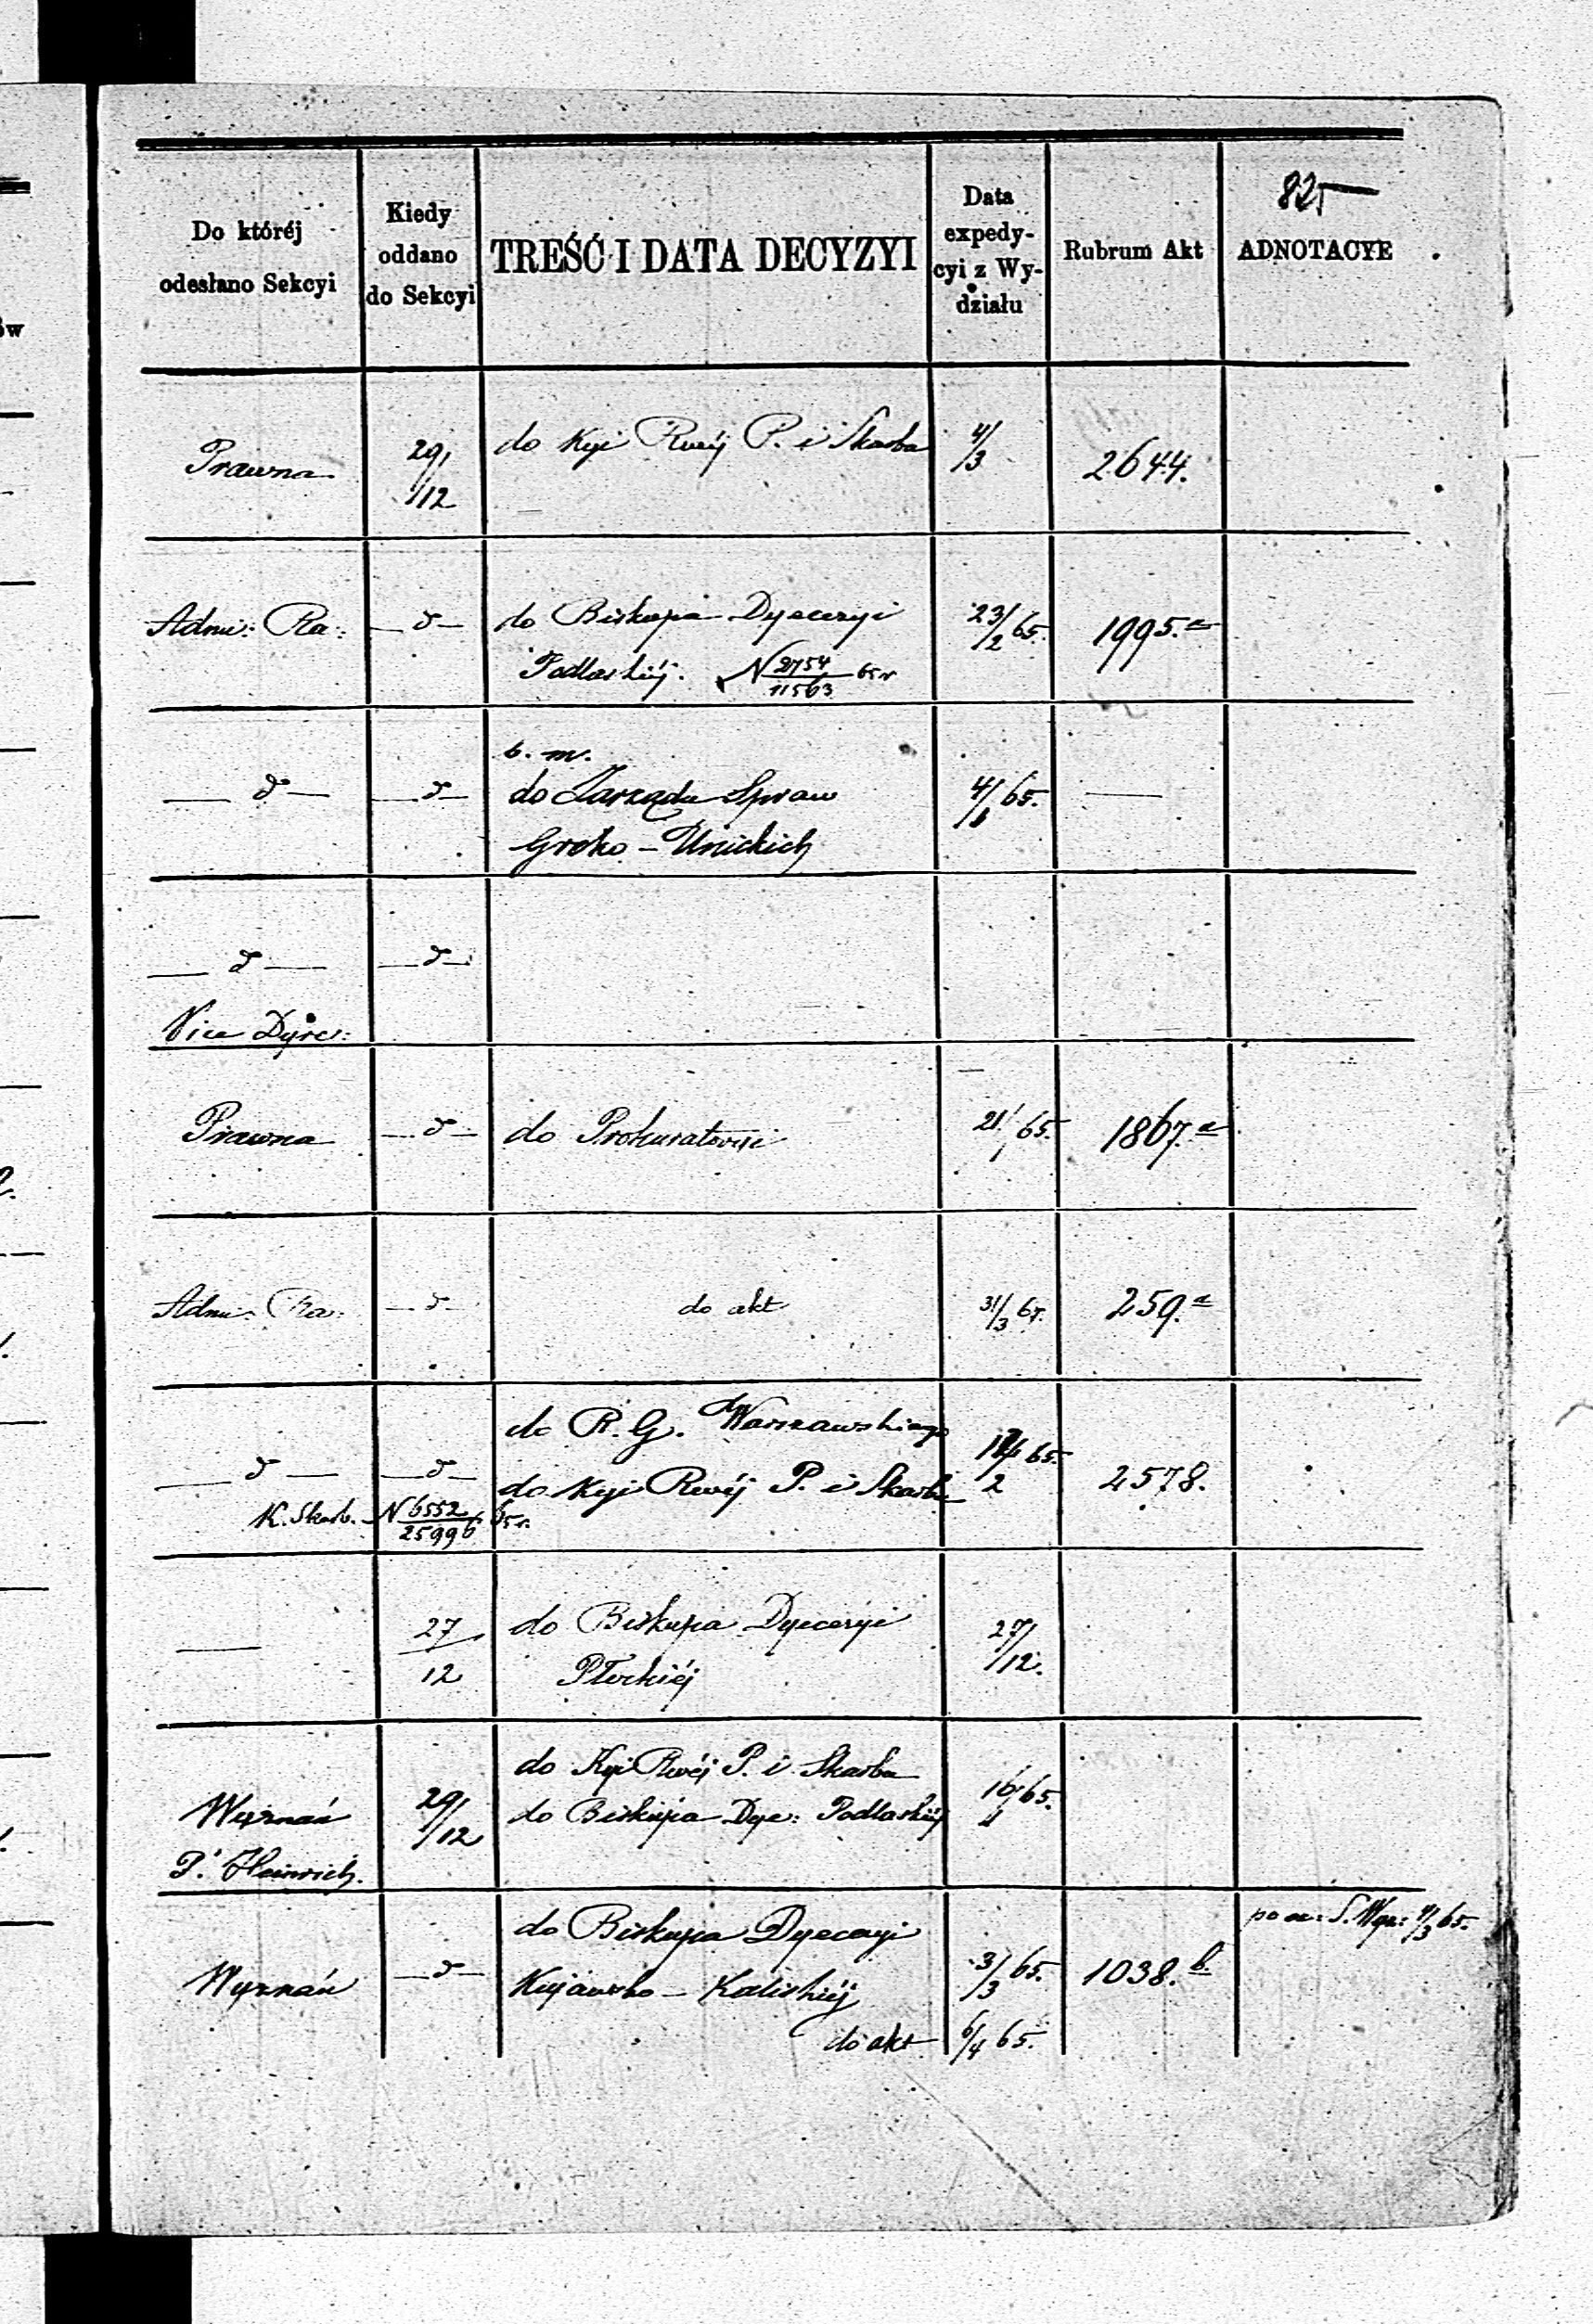 825
Do któréj
odesłano Sekcyi
Kiedy
oddano
do Sekcyi
TREŚĆ I DATA DECYZYI
Data
expedy-
cyi z Wy-
działu
Rubrum Akt
ADNOTACYE
Prawna
29/12
do Kyi Rwéj P. i Skarbu
4/3
2644.
Admi: Ra:
— d —
do Biskupa Dyecezyi
Podlaskiéj. N 2754/11563 65 r
23/2 65.
1995. a
— d —
— d —
b. m.
do Zarządu Spraw
Greko - Unickich
4/1 65.
—
— d —
— d —
Vice Dyrec:
Prawna
— d —
do Prokuratoryi
21/1 65.
1867. a
Admi: Ra:
— d —
do akt
31/3 65.
259. a
— d —
— d —
do R. G. Warszawskiego
do Kyi Rwéj P. i Skarbu
2
65.
2578.
K. Skarb. N 6552/25996 65 r.
—
27/12
do Biskupa Dyecezyi
Płockiéj
27/12.
Wyznań
P. Heinrich.
29/12
do Kyi Rwéj P. i Skarbu
do Biskupa Dye: Podlaskiéj
16/1 65.
Wyznań
— d —
do Biskupa Dyecezyi
Kujawsko - Kaliskiéj
do akt
3/3 65.
6/4 65.
1038. b.
65.